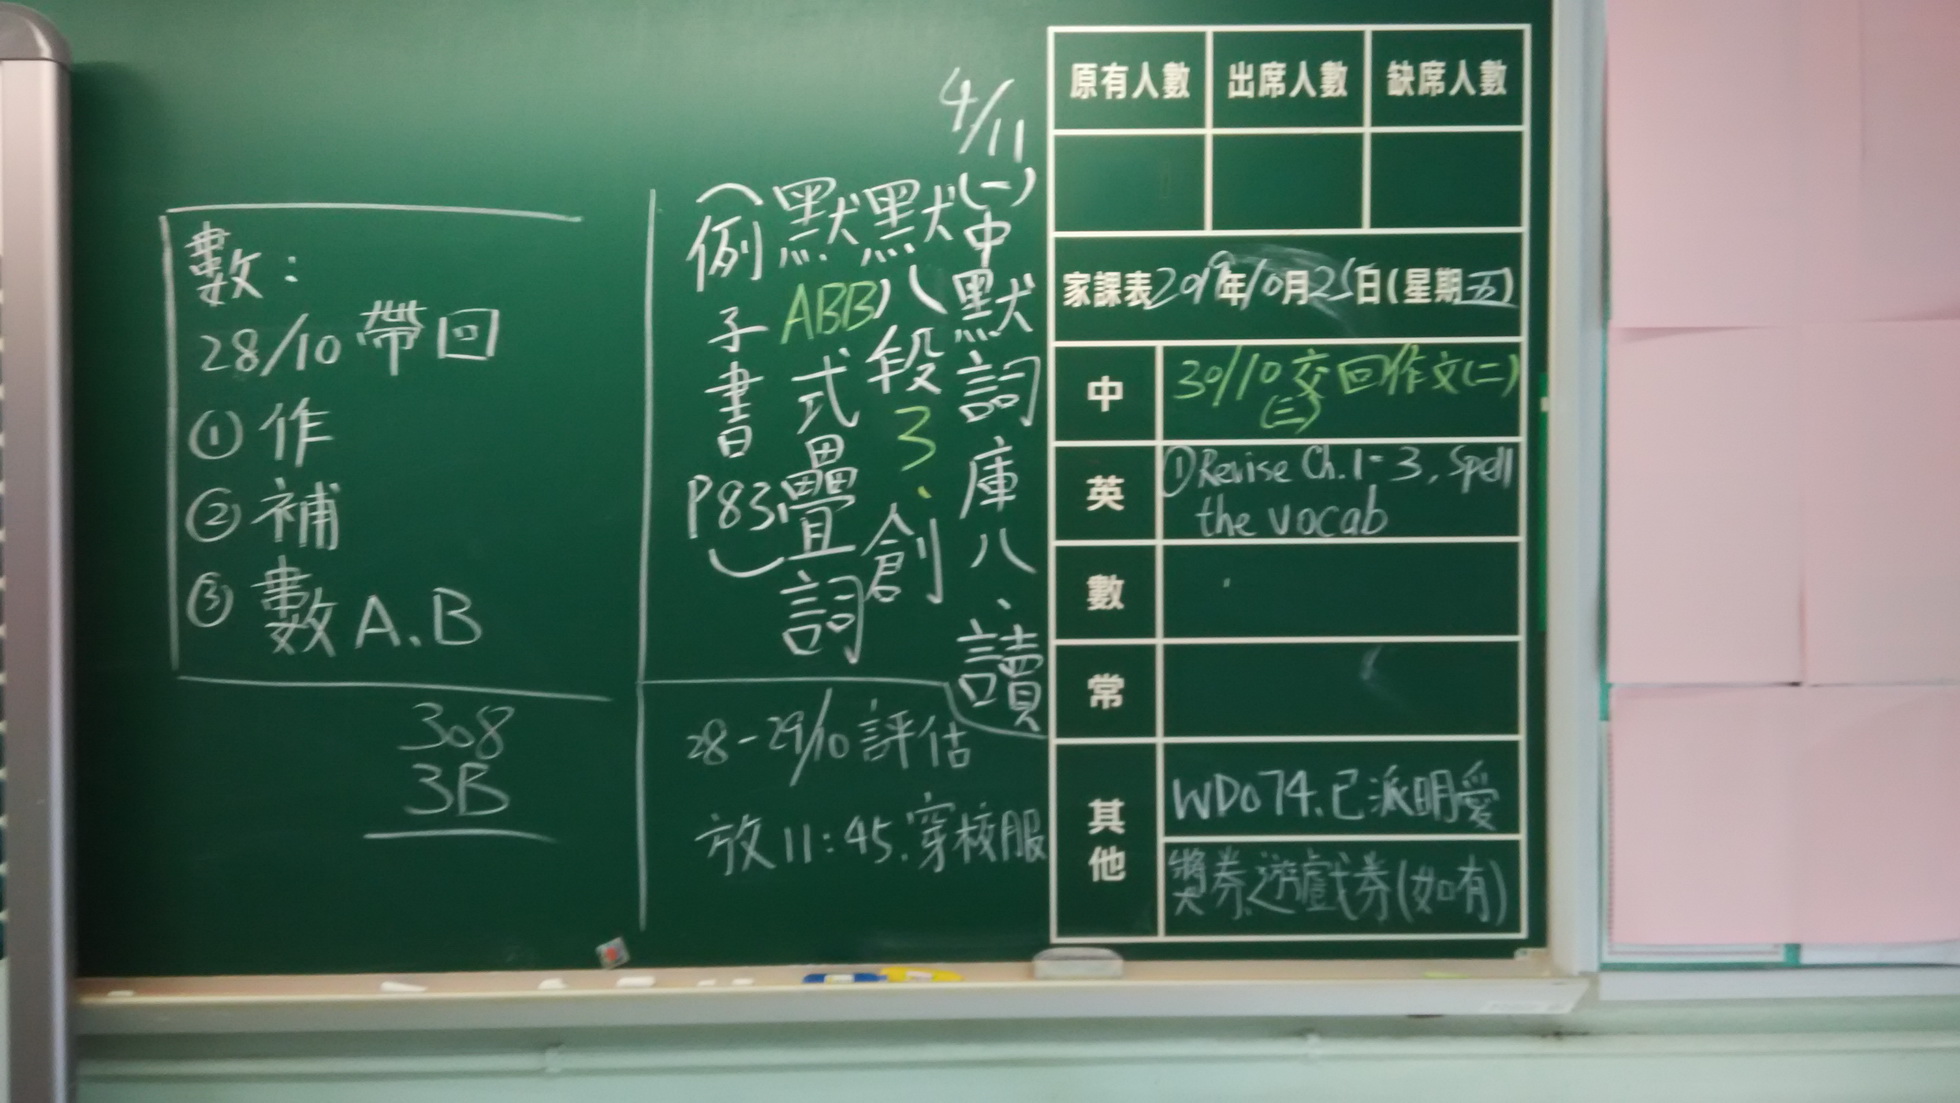 數：
28/10 帶回
① 作
② 補
③ 數 A、B
308
3B
4/11(一)中默詞庫八、讀
默八段3、創
默ABB式疊詞
（例子書P83）
28-29/10 評估
放11:45.穿校服
原有人數 出席人數 缺席人數
家課表2019年10月25日(星期五)
中 30/10交回作文(二)
(三)
英 ①Revise Ch.1-3, Spell
the vocab
數
常
其他 WD074.已派明愛
獎券.遊戲券(如有)